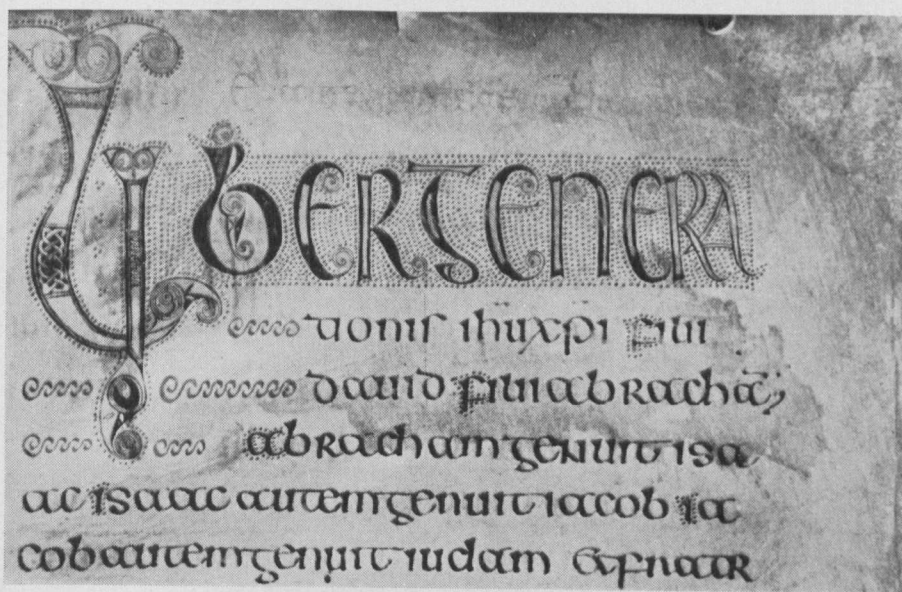 LIBERGENERA
tionis ihuxpi filii
dauid filii abrachā
abracham genuit isa
ac isaac autem genuit iacob ia
cob autem genuit iudam et fratr